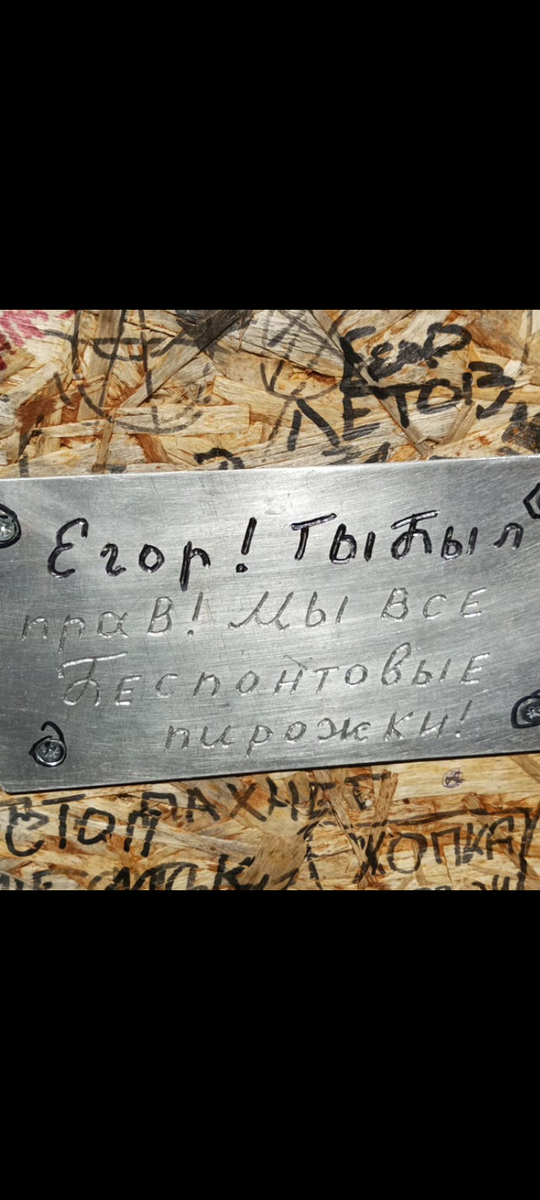 ЕГОР
ЛЕТОВ
Егор! Ты был
прав! Мы все
Беспонтовые
пирожки!
ПАХНЕТ